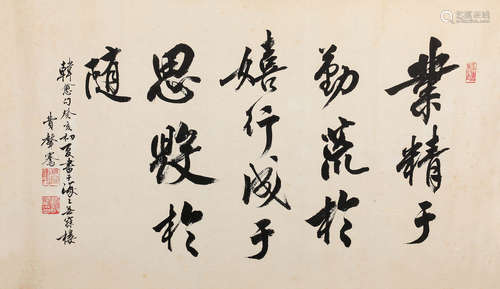 業精于
勤荒於
嬉行成于
思毀於
随
韓愈句癸亥初夏書于海上樓
費聲騫